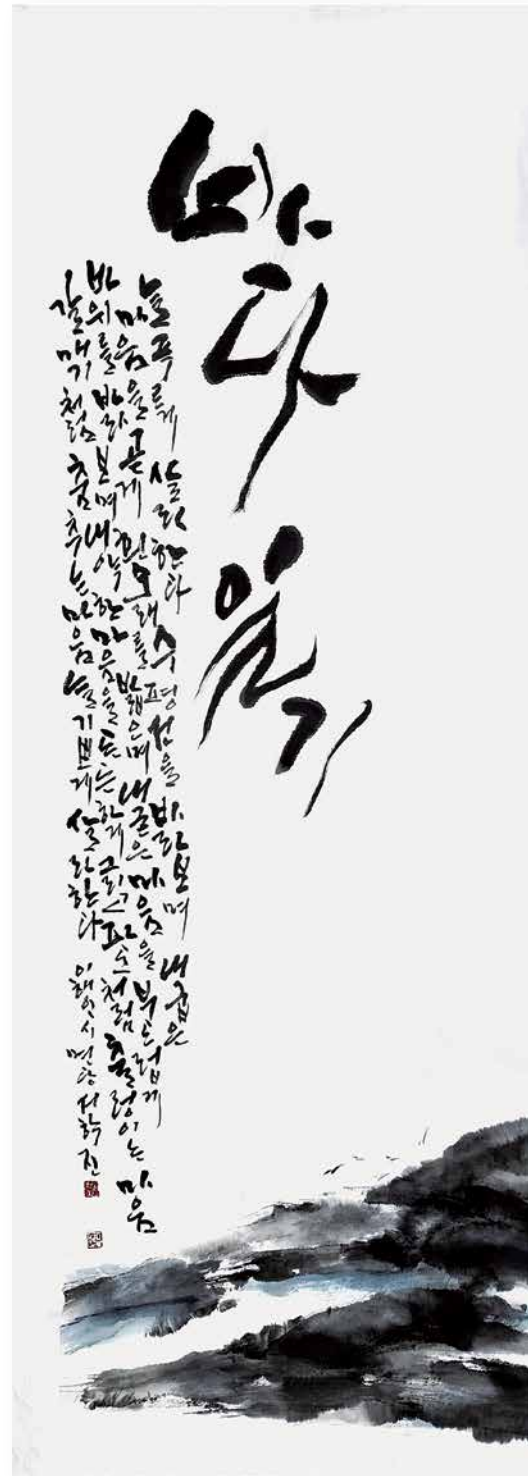 바다
일기
늘 푸르게 살라 한다 수평선을 바라보며 내 굽은
마음을 곧게 흰 모래를 밟으며 내 굳은 마음을 부드럽게
바위를 바라보며 내 약한 마음을 든든하게 그리고 파도처럼 출렁이는 마음
갈매기처럼 춤추는 마음 늘 기쁘게 살라 한다 이해인 시 면당 서학진